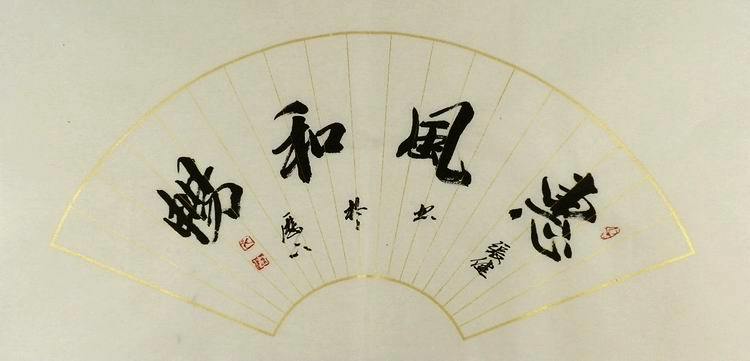 惠風和暢
張健書於歷下